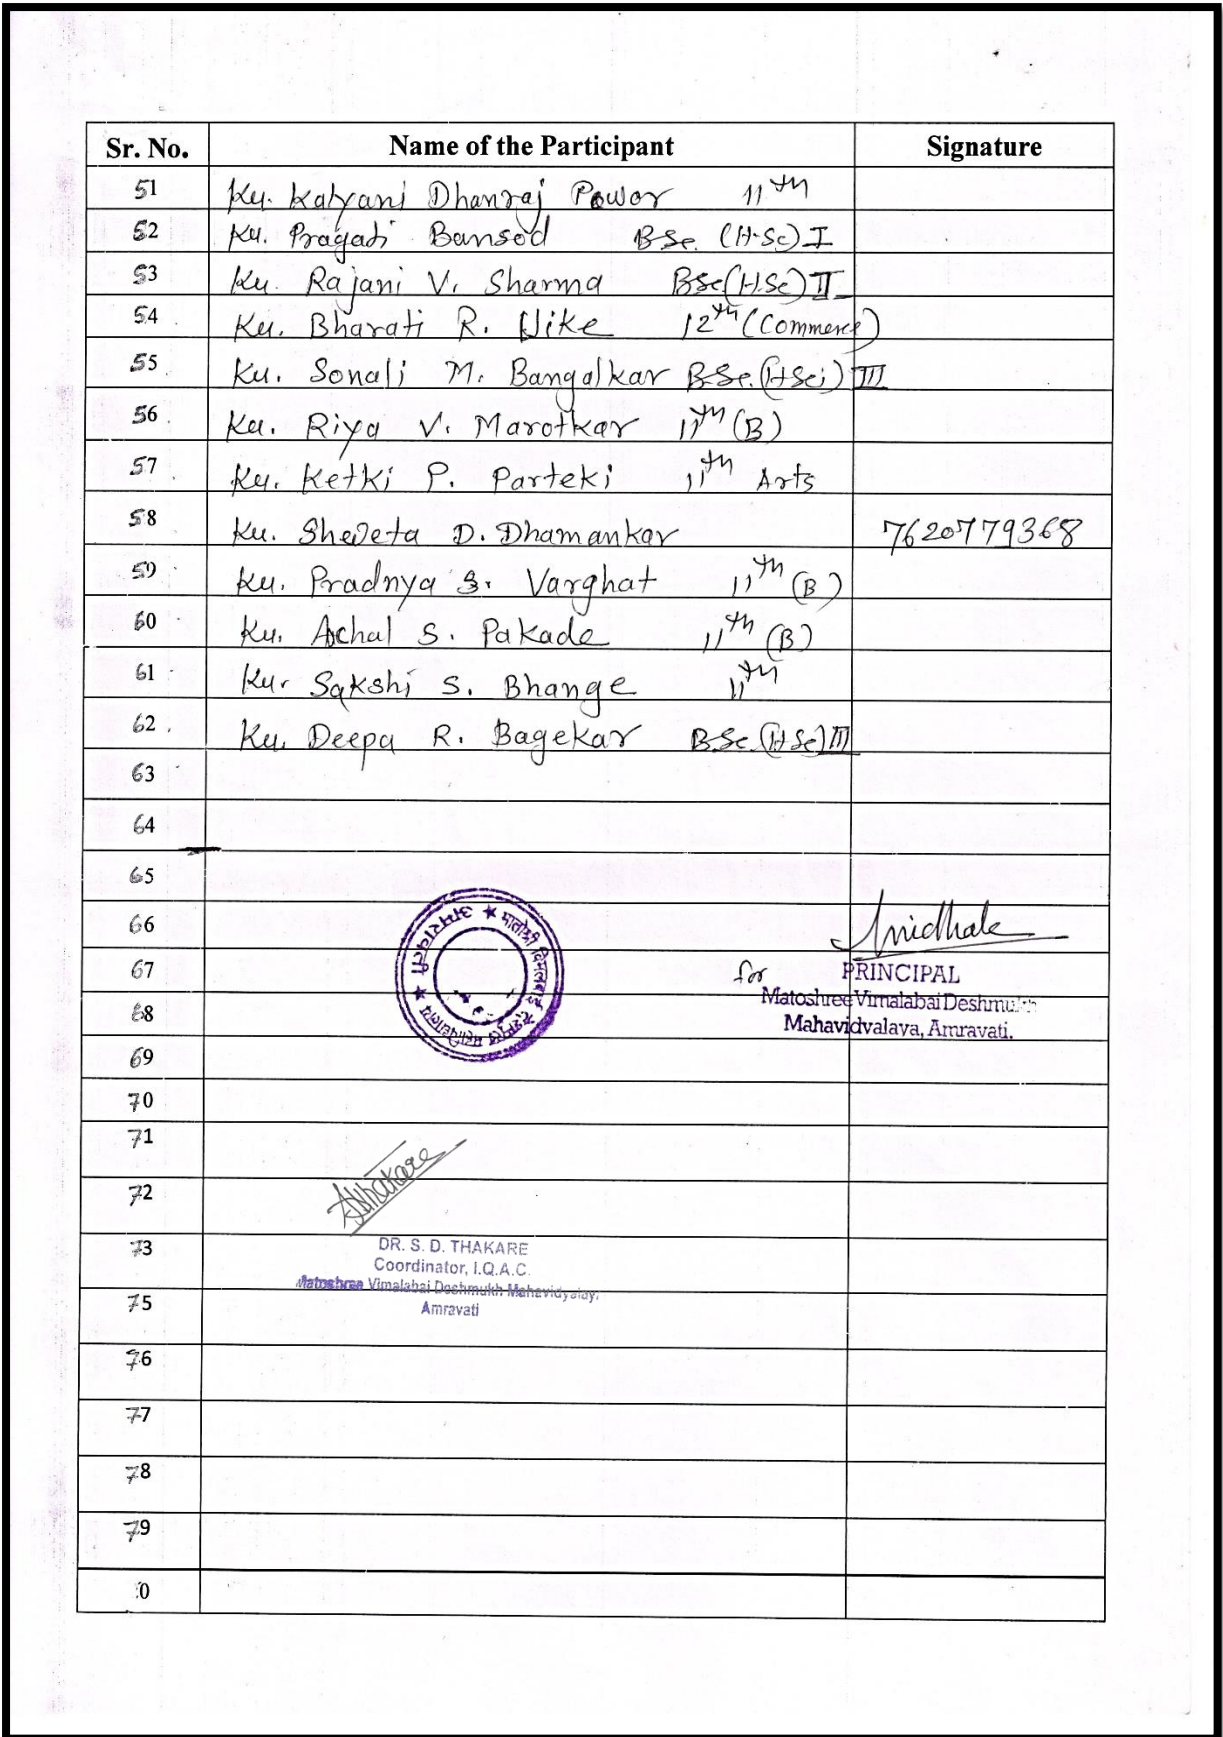 Sr. No. Name of the Participant Signature
51 Ku. Kalyani Dhanraj Power 11th
52 Ku. Pragati Bansod BSc. (H.Sc) I
53 Ku. Rajani V. Sharma BSc(H.Sc) II
54 Ku. Bharati R. Uike 12th (Commerce)
55 Ku. Sonali M. Bangalkar B.Sc. (HSci) III
56 Ku. Riya V. Marotkar 11th (B)
57 Ku. Ketki P. Parteki 11th Arts
58 Ku. Sheveta D. Dhamankar 7620779368
59 Ku. Pradnya S. Varghat 11th (B)
60 Ku. Achal S. Pakade 11th (B)
61 Ku. Sakshi S. Bhange 11th
62 Ku. Deepa R. Bagekar B.Sc. (H.Sc) III
63
64
65
66
67 for PRINCIPAL
Matoshree Vimalabai Deshmukh
68
Mahavidyalaya, Amravati.
मातोश्री विमलाबाई देशमुख महाविद्यालय ★ अमरावती ★
69
70
71
Thakare
72
73 DR. S. D. THAKARE
Coordinator, I.Q.A.C.
Matoshree Vimalabai Deshmukh Mahavidyalay,
75 Amravati
76
77
78
79
0